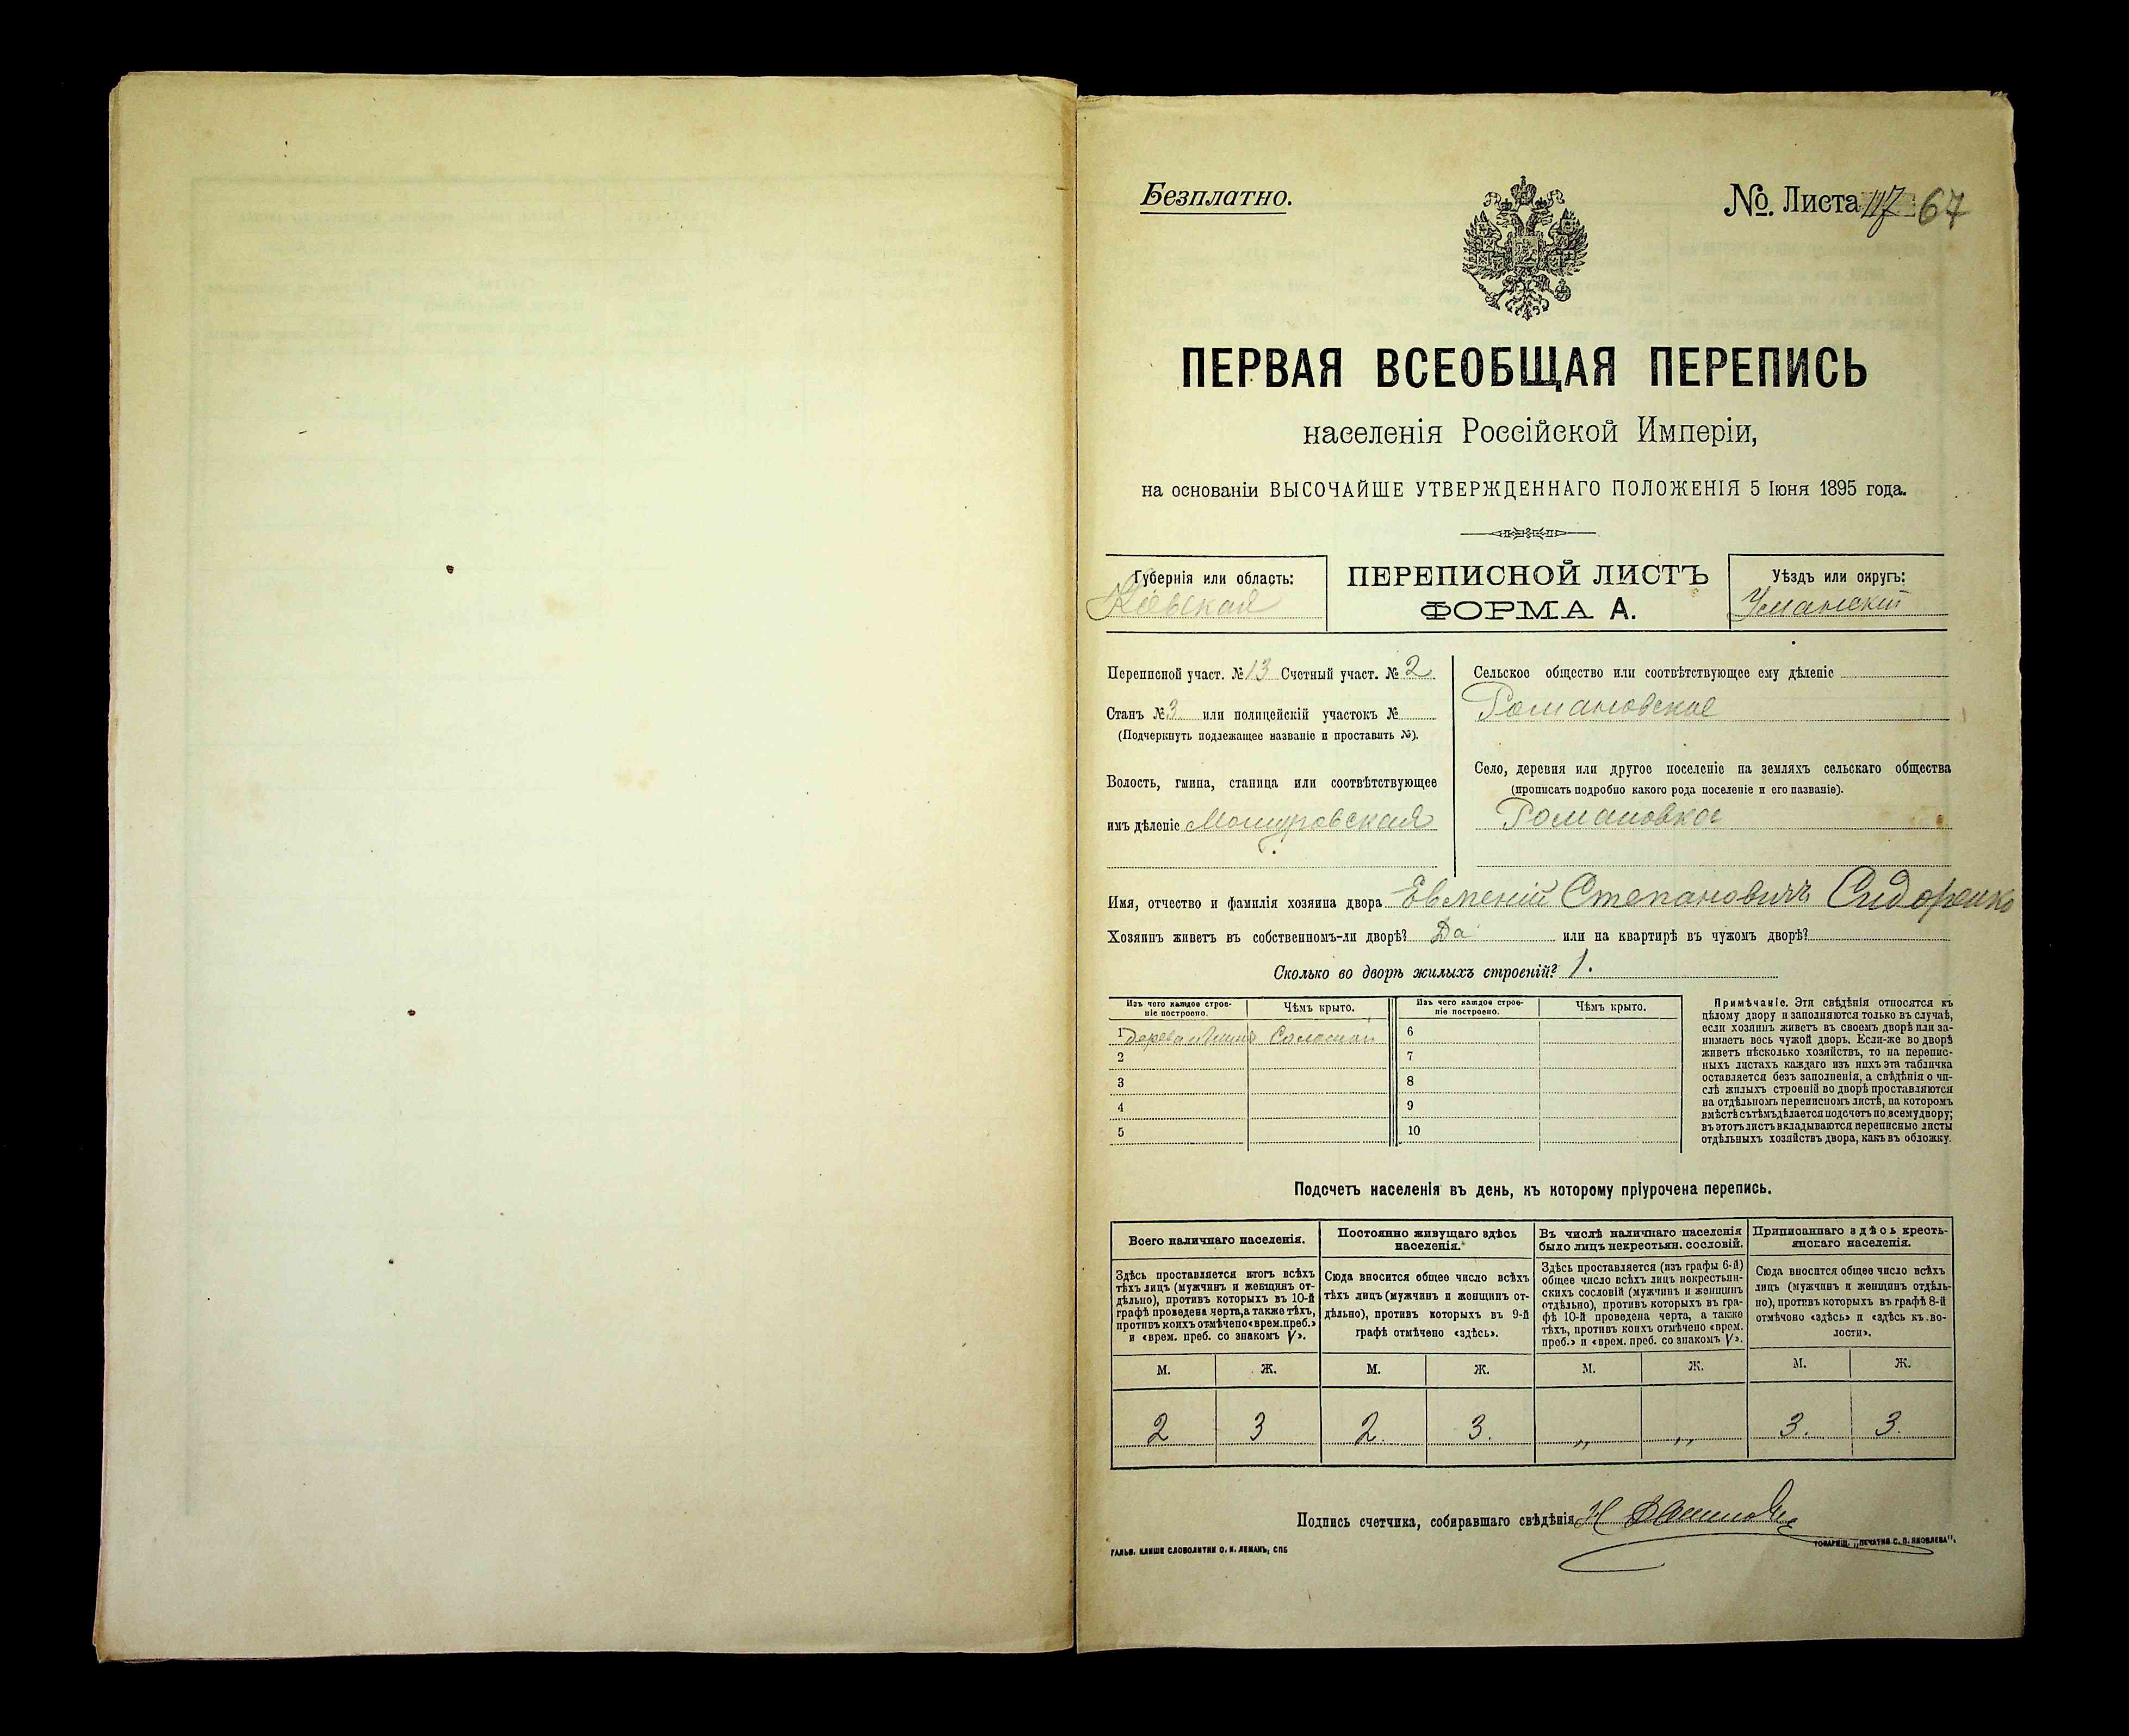 Безплатно.
№. Листа 67
ПЕРВАЯ ВСЕОБЩАЯ ПЕРЕПИСЬ
населенія Россійской Имперіи,
на основаніи ВЫСОЧАЙШЕ УТВЕРЖДЕННАГО ПОЛОЖЕНІЯ 5 Іюня 1895 года.
Губернія или область:
Кіевская
ПЕРЕПИСНОЙ ЛИСТЪ
ФОРМА А.
Уѣздъ или округъ:
Уманскій
Переписной участ. № 13 Счетный участ. № 2
Станъ № 3 или полицейскій участокъ №
(Подчеркнуть подлежащее названіе и проставить №).
Волость, гмина, станица или соотвѣтствующее
имъ дѣленіе Мошуровская
Сельское общество или соотвѣтствующее ему дѣленіе
Романовское
Село, деревня или другое поселеніе на земляхъ сельскаго общества
(прописать подробно какого рода поселеніе и его названіе).
Романовка
Имя, отчество и фамилія хозяина двора Евменій Степановичъ Сидоренко
Хозяинъ живетъ въ собственномъ-ли дворѣ? Да или на квартирѣ въ чужомъ дворѣ?
Сколько во дворѣ жилыхъ строеній? 1.
Изъ чего каждое строе-
ніе построено.
Чѣмъ крыто.
Изъ чего каждое строе-
ніе построено.
Чѣмъ крыто.
1 Соломой 6
2 7
3 8
4 9
5 10
Примѣчаніе. Эти свѣдѣнія относятся къ
цѣлому двору и заполняются только въ случаѣ,
если хозяинъ живетъ въ своемъ дворѣ или за-
нимаетъ весь чужой дворъ. Если-же во дворѣ
живетъ нѣсколько хозяйствъ, то на перепис-
ныхъ листахъ каждаго изъ нихъ эта табличка
оставляется безъ заполненія, а свѣдѣнія о чи-
слѣ жилыхъ строеній во дворѣ проставляются
на отдѣльномъ переписномъ листѣ, на которомъ
вмѣстѣ съ тѣмъ дѣлается подсчетъ по всему двору;
въ этотъ листъ вкладываются переписные листы
отдѣльныхъ хозяйствъ двора, какъ въ обложку.
Подсчетъ населенія въ день, къ которому пріурочена перепись.
Всего наличнаго населенія.
Здѣсь проставляется итогъ всѣхъ
тѣхъ лицъ (мужчинъ и женщинъ от-
дѣльно), противъ которыхъ въ 10-й
графѣ проведена черта, а также тѣхъ,
противъ коихъ отмѣчено «врем. преб.»
и «врем. преб. со знакомъ V».
Постоянно живущаго здѣсь
населенія.
Сюда вносится общее число всѣхъ
тѣхъ лицъ (мужчинъ и женщинъ от-
дѣльно), противъ которыхъ въ 9-й
графѣ отмѣчено «здѣсь».
Въ числѣ наличнаго населенія
было лицъ некрестьян. сословій.
Здѣсь проставляется (изъ графы 6-й)
общее число всѣхъ лицъ некрестьян-
скихъ сословій (мужчинъ и женщинъ
отдѣльно), противъ которыхъ въ гра-
фѣ 10-й проведена черта, а также
тѣхъ, противъ коихъ отмѣчено «врем.
преб.» и «врем. преб. со знакомъ V».
Приписаннаго здѣсь кресть-
янскаго населенія.
Сюда вносится общее число всѣхъ
лицъ (мужчинъ и женщинъ отдѣль-
но), противъ которыхъ въ графѣ 8-й
отмѣчено «здѣсь» и «здѣсь къ во-
лости».
М. Ж. М. Ж. М. Ж. М. Ж.
2 3 2. 3. „ „ 3. 3.
Подпись счетчика, собиравшаго свѣдѣнія
ГАЛЬВ. КЛИШЕ СЛОВОЛИТНИ О. И. ЛЕМАНЪ, СПБ
ТОВАРИЩ. „ПЕЧАТНЯ С. П. ЯКОВЛЕВА".